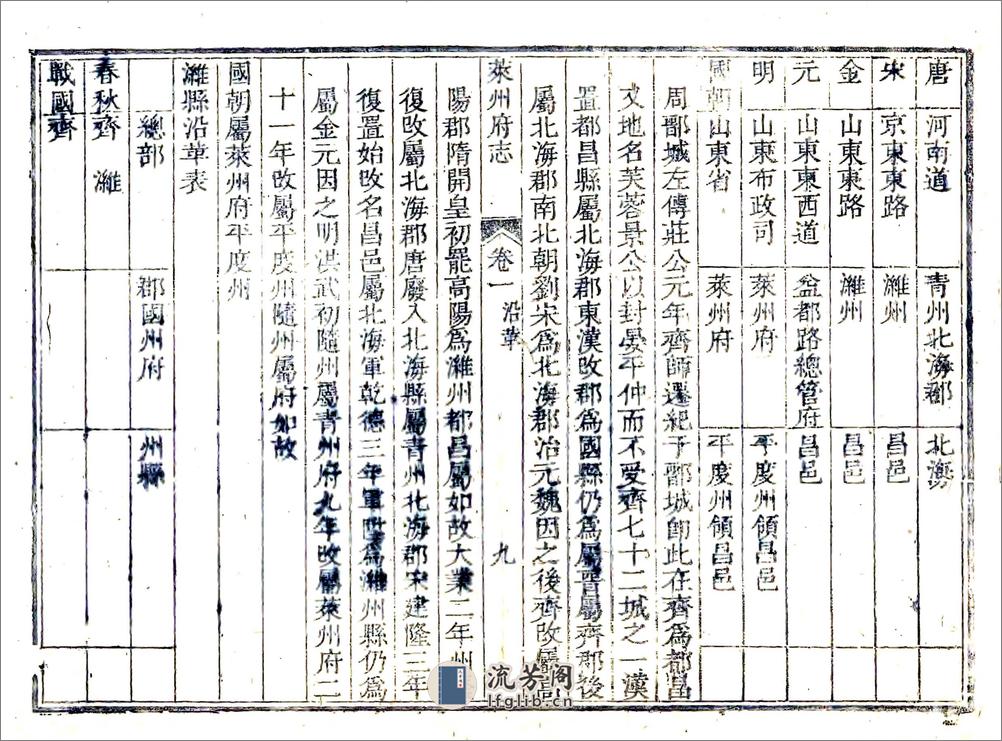 唐 河南道 青州北海郡 北海
宋 京東東路 濰州 昌邑
金 山東東路 濰州 昌邑
元 山東東西道 益都路總管府 昌邑
明 山東布政司 萊州府 平度州領昌邑
國朝 山東省 萊州府 平度州領昌邑
周鄑城左傳莊公元年齊師遷紀于鄑城卽此在齊爲都昌
又地名芙蓉景公以封晏平仲而不受齊七十二城之一漢
置都昌縣屬北海郡東漢改郡爲國縣仍爲屬晋屬齊郡後
屬北海郡南北朝劉宋爲北海郡治元魏因之後齊改屬高
萊州府志 卷一 沿革 九
陽郡隋開皇初罷高陽爲濰州都昌屬如故大業二年州
復改屬北海郡唐廢入北海縣屬青州北海郡宋建隆三年
復置始改名昌邑屬北海軍乾德三年軍陞爲濰州縣仍爲
屬金元因之明洪武初隨州屬青州府九年改屬萊州府二
十一年改屬平度州隨州屬府如故
國朝屬萊州府平度州
濰縣沿革表
總部 郡國州府 州縣
春秋齊 濰
戰國齊
流芳阁
lfglib.cn